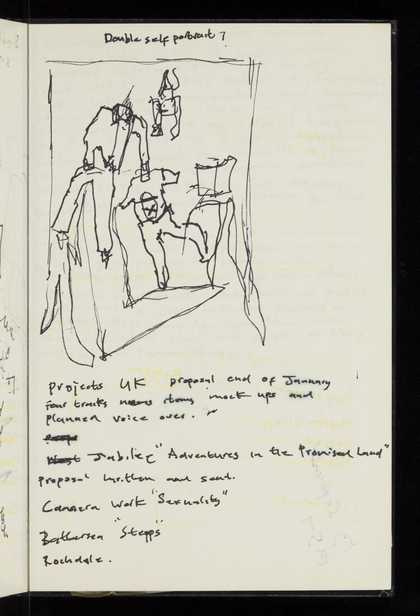 Double self portrait ?
Projects UK proposal end of January
four tracks mock ups and
planned voice over.
Jubilee "Adventures in the Promised Land"
proposal written and sent.
Camera Work "Sexuality"
"Stepps"
Rochdale.